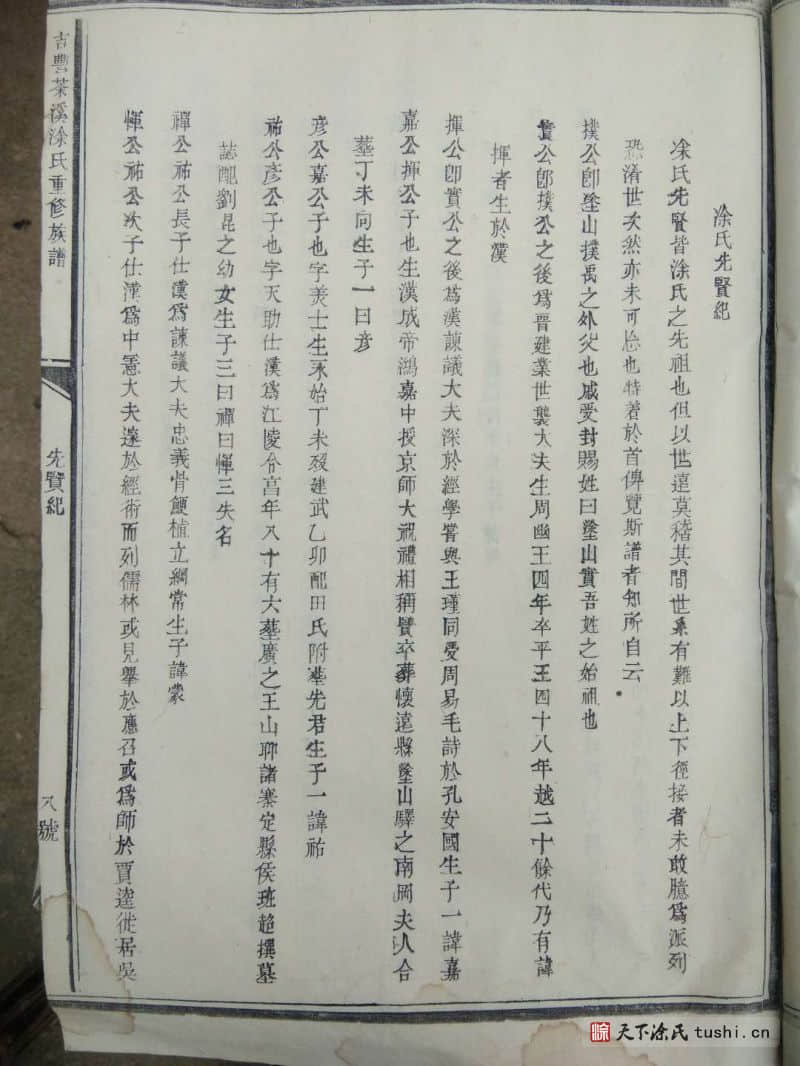 涂氏先賢紀
涂氏先賢皆涂氏之先祖也但以世遠莫稽其間世系有難以上下徑接者未敢臆爲派列
恐淆世次然亦未可忽也特着於首俾覽斯譜者知所自云
撲公卽塗山撲禹之外父也戚受封賜姓曰塗山實吾姓之始祖也
實公郎撲公之後爲晋建業世襲大夫生周幽王四年卒平王四十八年越二十餘代乃有諱
揮者生於漢
揮公卽實公之後爲漢諫議大夫深於經學嘗與王瑾同受周易毛詩於孔安國生子一諱嘉
嘉公揮公子也生漢成帝鴻嘉中授京師大祝禮相稱贊卒葬懷遠縣塗山驛之南岡夫人合
墓丁未向生子一曰彦
彦公嘉公子也字羙士生永始丁未殁建武乙卯配田氏附塟先君生子一諱祐
祐公彦公子也字天助仕漢爲江陵令享年八十有六墓廣之王山聊諸寨定縣侯班超撰墓
誌配劉昆之幼女生子三曰禪曰惲三失名
禪公祐公長子仕漢爲諫議大夫忠義骨鯁植立綱常生子諱裳
惲公祐公次子仕漢爲中憲大夫邃於經術而列儒林或見舉於應召或爲師於賈逵徙居吳
吉豐茶溪涂氏重修族譜
先賢紀
八號
涂 天下涂氏 tushi.cn